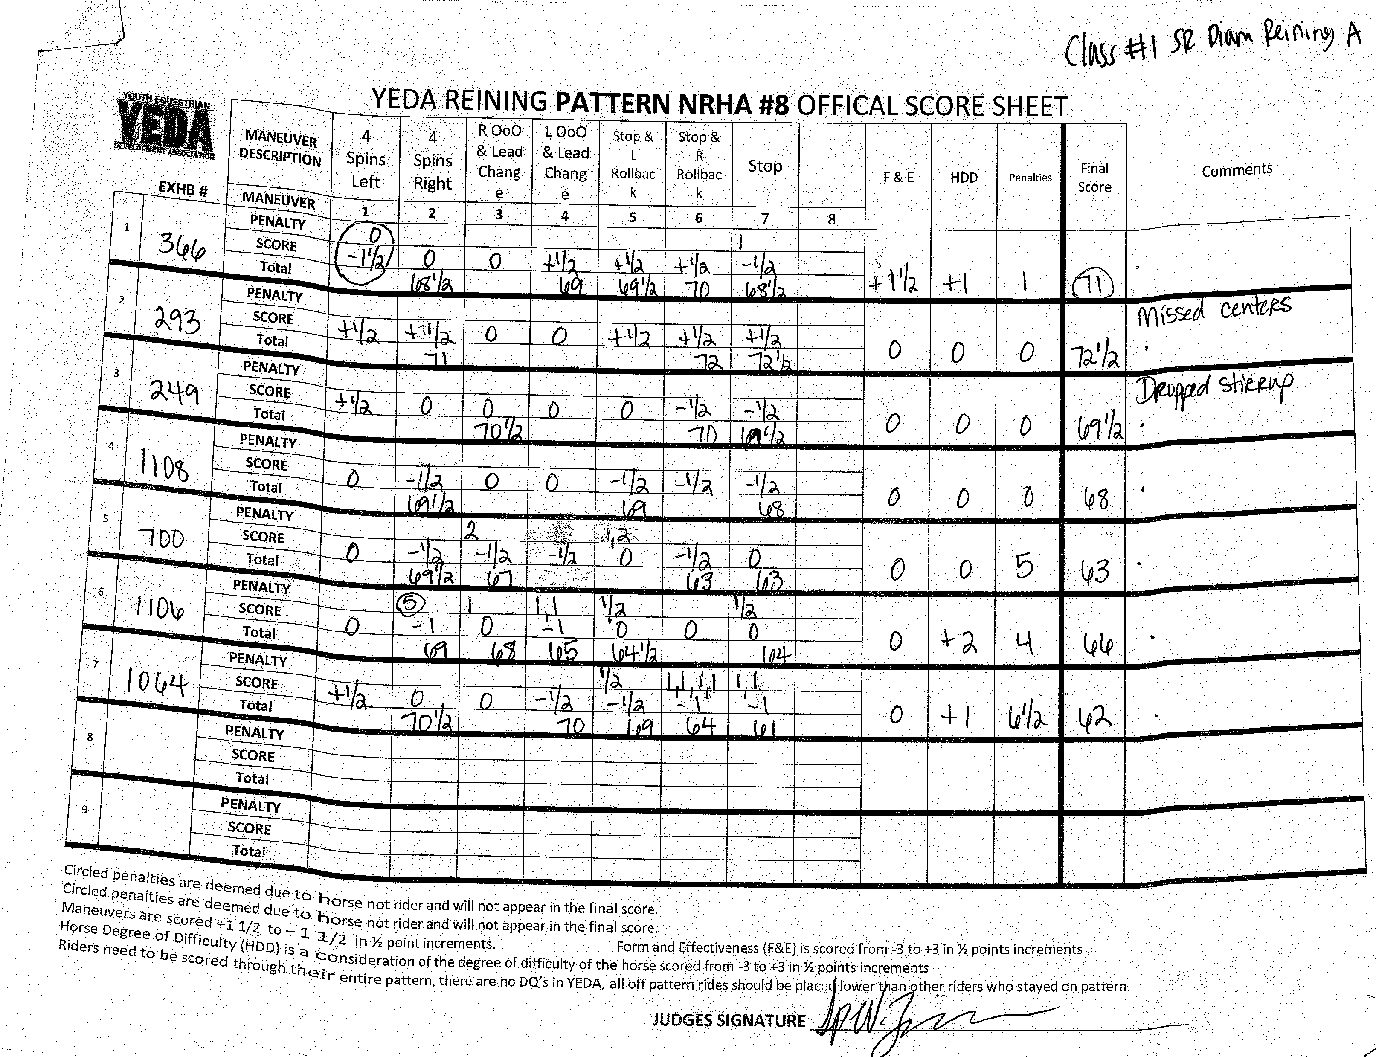 Class #1 SR Diam Reining A
YOUTH EQUESTRIAN
YEDA
YEDA REINING PATTERN NRHA #8 OFFICAL SCORE SHEET
EXHB #
MANEUVER DESCRIPTION | 4 Spins Left | 4 Spins Right | R OoO & Lead Chang e | L OoO & Lead Chang e | Stop & L Rollbac k | Stop & R Rollbac k | Stop | F & E | HDD | Penalties | Final Score | Comments
MANEUVER 1 2 3 4 5 6 7 8
1 366
PENALTY 0 1
SCORE -1 1/2 0 0 +1/2 +1/2 +1/2 -1/2
Total 68 1/2 69 69 1/2 70 68 1/2 +1 1/2 +1 1 71
2 293
PENALTY Missed centers
SCORE +1/2 +1/2 0 0 +1/2 +1/2 +1/2
Total 71 72 72 1/2 0 0 0 72 1/2
3 249
PENALTY Dropped stirrup
SCORE +1/2 0 0 0 0 -1/2 -1/2
Total 70 1/2 70 69 1/2 0 0 0 69 1/2
4 1108
PENALTY
SCORE 0 -1/2 0 0 -1/2 -1/2 -1/2
Total 69 1/2 69 68 0 0 0 68
5 700
PENALTY 2 1,2
SCORE 0 -1/2 -1/2 -1/2 0 -1/2 0
Total 69 1/2 67 63 63 0 0 5 63
6 1106
PENALTY 5 1 1,1 1/2 1/2
SCORE 0 -1 0 -1 0 0 0
Total 69 68 65 64 1/2 64 0 +2 4 66
7 1064
PENALTY 1/2 1,1,1,1 1 1
SCORE +1/2 0 0 -1/2 -1/2 -1 -1
Total 70 1/2 70 69 64 61 0 +1 6 1/2 62
8
PENALTY
SCORE
Total
9
PENALTY
SCORE
Total
Circled penalties are deemed due to horse not rider and will not appear in the final score.
Circled penalties are deemed due to horse not rider and will not appear in the final score.
Maneuvers are scored +1 1/2 to – 1 1/2 in ½ point increments. Form and Effectiveness (F&E) is scored from -3 to +3 in ½ points increments
Horse Degree of Difficulty (HDD) is a consideration of the degree of difficulty of the horse scored from -3 to +3 in ½ points increments
Riders need to be scored through their entire pattern, there are no DQ's in YEDA, all off pattern rides should be placed lower than other riders who stayed on pattern.
JUDGES SIGNATURE